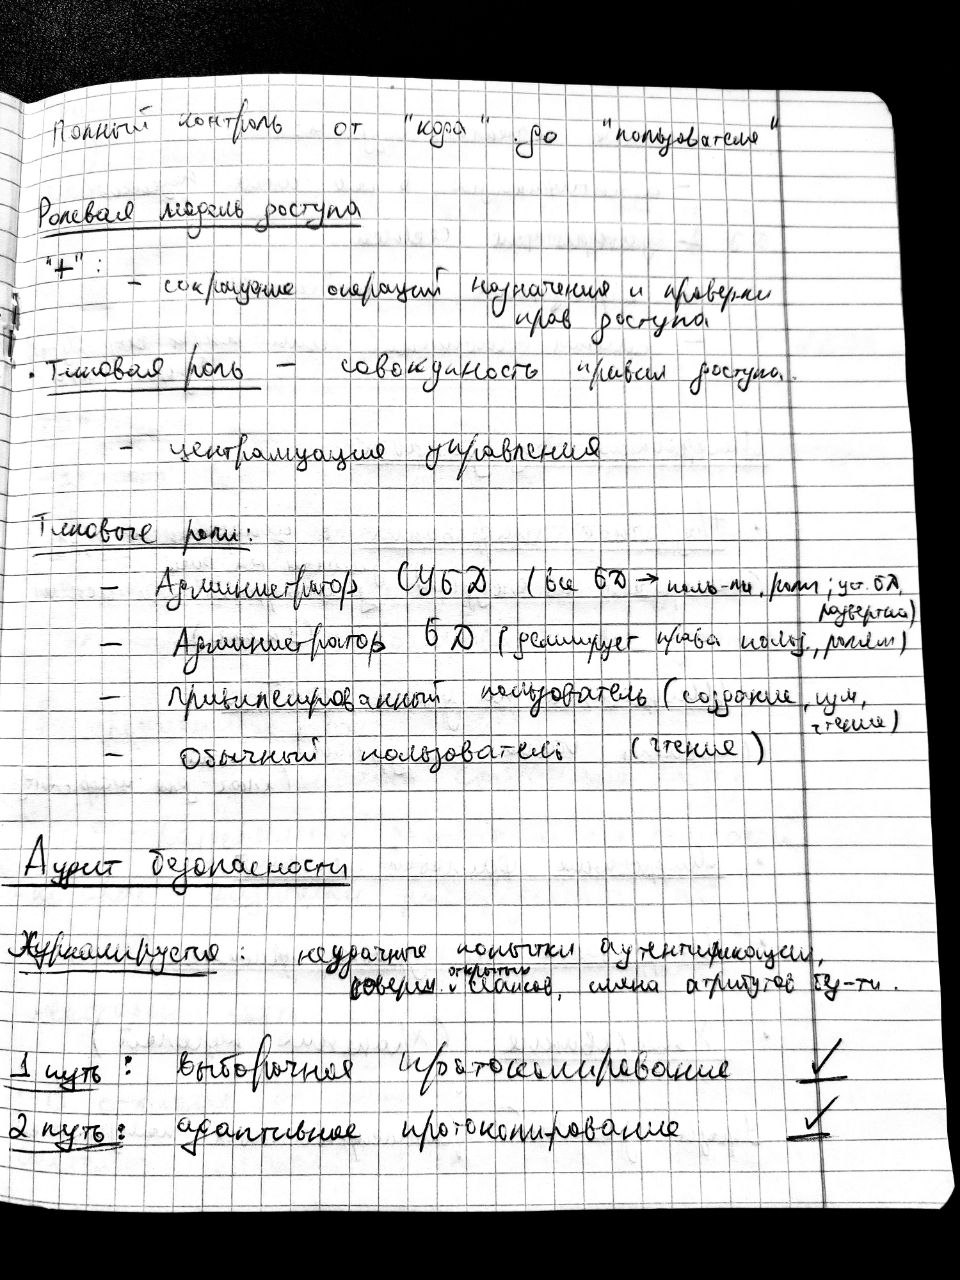 Полный контроль от "кода" до "пользователя"
Ролевая модель доступа
"+":
- сокращение операций назначения и проверки
прав доступа
• Типовая роль — совокупность правил доступа.
- централизация управления
Типовые роли:
— Администратор СУБД (все БД → поль-ли, роли; уст. БД,
— Администратор БД (делигирует права польз., ролям)
— Привилегированный пользователь (создание, изм,
чтение)
— Обычный пользователь (чтение)
Аудит безопасности
Журналируется: неудачные попытки аутентификации,
открытых
соверш. сеансов, смена атрибутов
1 путь: выборочное протоколирование ✓
2 путь: адаптивное протоколирование ✓